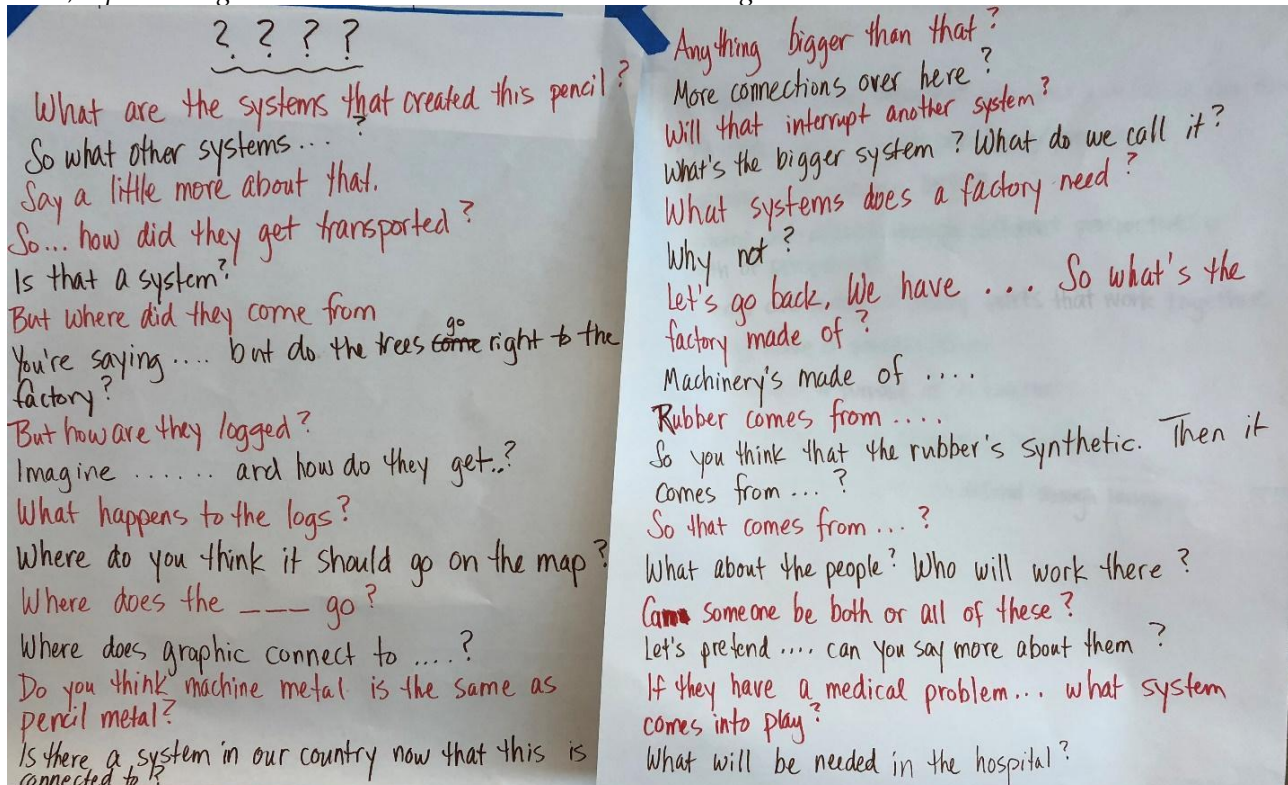 ? ? ? ?
What are the systems that created this pencil?
So what other systems...?
Say a little more about that.
So... how did they get transported?
Is that a system?
But where did they come from
You're saying .... but do the trees come go right to the
factory?
But how are they logged?
Imagine ....... and how do they get..?
What happens to the logs?
Where do you think it should go on the map?
Where does the ___ go?
Where does graphic connect to ....?
Do you think machine metal is the same as
pencil metal?
Is there a system in our country now that this is
connected to?
Anything bigger than that?
More connections over here?
Will that interrupt another system?
What's the bigger system? What do we call it?
What systems does a factory need?
Why not?
Let's go back. We have .... So what's the
factory made of?
Machinery's made of ....
Rubber comes from ....
So you think that the rubber's synthetic. Then it
comes from ...?
So that comes from ...?
What about the people? Who will work there?
Can someone be both or all of these?
Let's pretend .... can you say more about them?
If they have a medical problem... what system
comes into play?
What will be needed in the hospital?